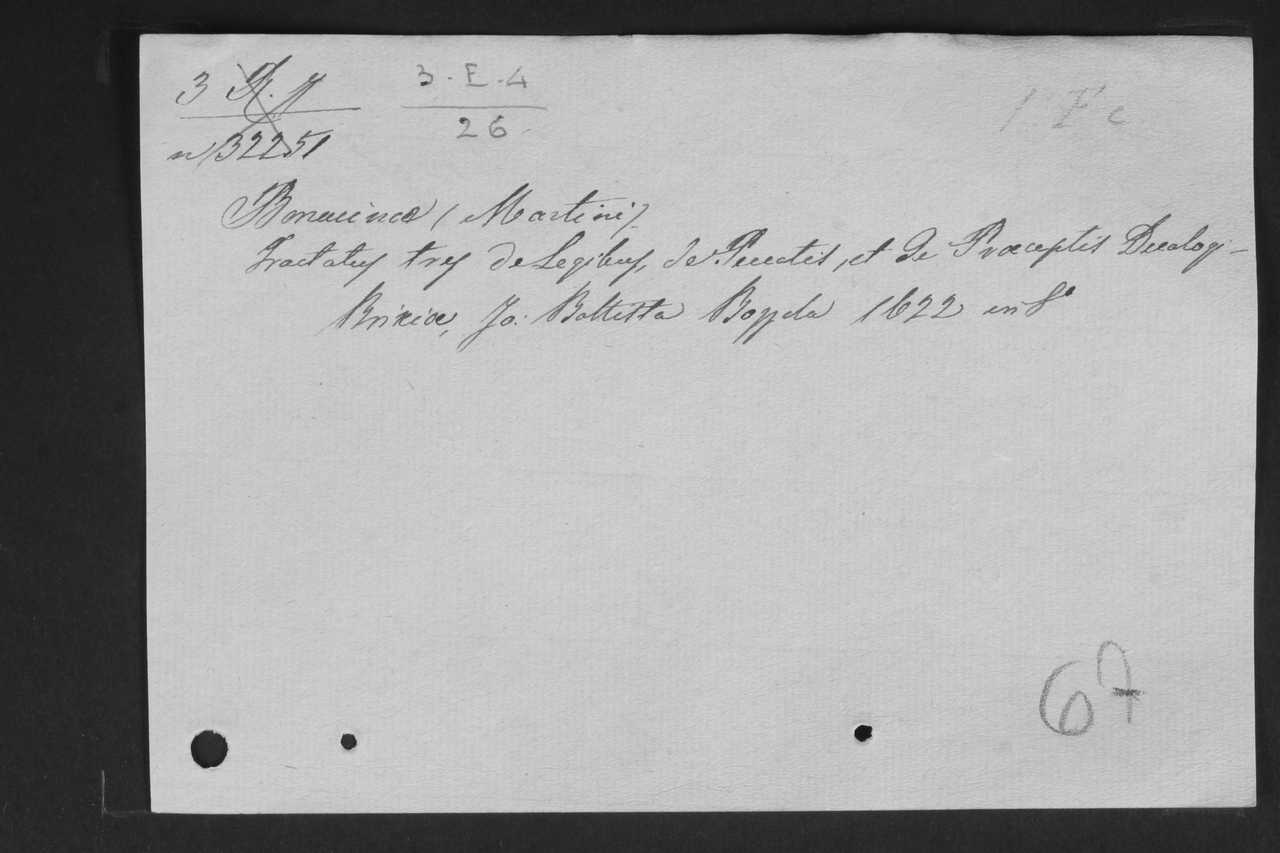 3 3. E. 4
n 32251 26
Bonacinæ (Martini)
Tractatus tres de Legibus, de Peccatis, et de Præceptis Decalogi-
Brixiæ, Jo: Battista Bozzola 1622 in 8°
67